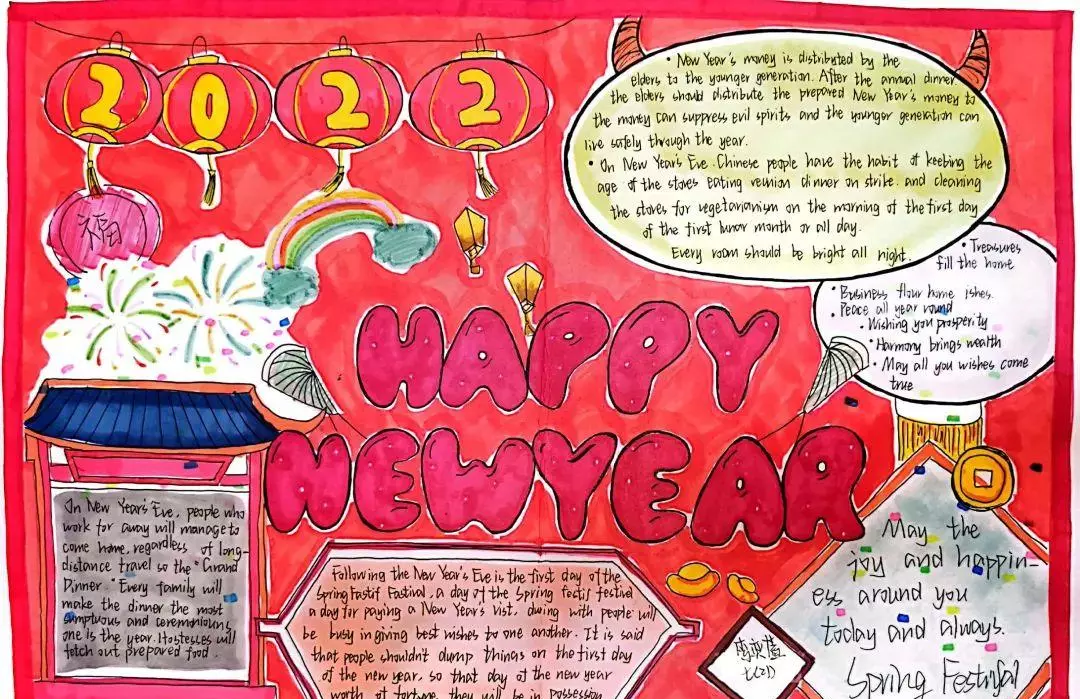 2022
福
• New Year's money is distributed by the
elders to the younger generation. After the annual dinner,
the elders should distribute the prepared New Year's money to
the money can suppress evil spirits and the younger generation can
live safely through the year.
• On New Year's Eve. Chinese people have the habit of keebing the
age of the stoves eating reunion dinner on strike. and cleaning
the stoves for vegetarianism on the morning of the first day
of the first lunor month or all day.
Every room should be bright all night.
• Treasures
fill the home
• Business flour home ishes.
• Peace all year round
• Wishing you prosperity
• Harmony brings wealth
• May all you wishes come
true
HAPPY
NEWYEAR
On New Year's Eve, people who
work for away will manage to
come home, regardless of long-
distance travel so the "Grand
Dinner." Every family will
make the dinner the most
sumptuous and ceremoniouns
one is the year. Hostesses will
fetch out prepared food.
Following the New Year's Eve is the first day of the
Spring Fastif Festival, a day of the Spring festif festival
a day for paying a New Year's vist. during with people will
be busy in giving best wishes to one another. It is said
that people shouldn't dump things on the first day
of the new year. so that day of the new year
worth of fortune they will be in possession
May the
joy and happin-
ess around you
today and always.
Spring Festifal